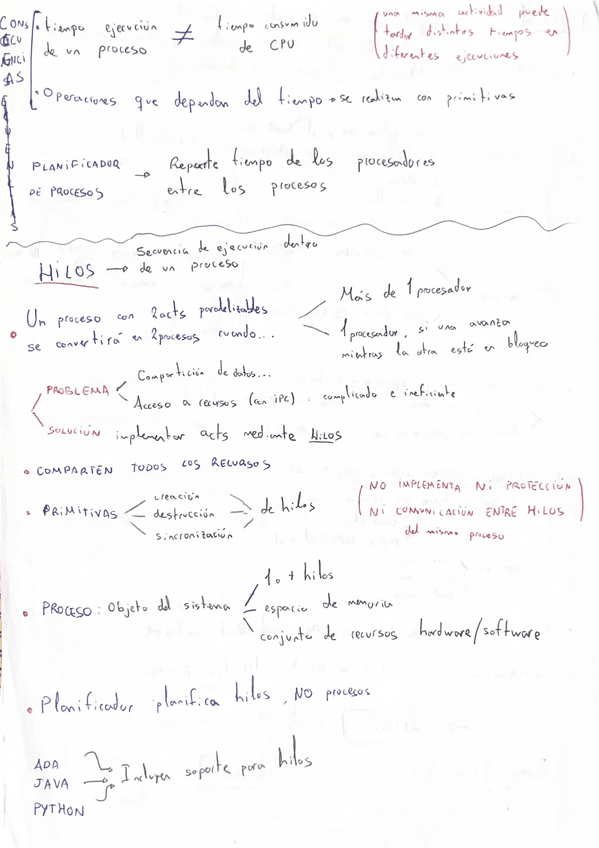 CONSECUENCIAS
• tiempo ejecución ≠ tiempo consumido
de un proceso de CPU
(una misma actividad puede
tardar distintos tiempos en
diferentes ejecuciones)
• Operaciones que dependan del tiempo → se realizan con primitivas
PLANIFICADOR → Reparte tiempo de los procesadores
DE PROCESOS entre los procesos
HILOS → Secuencia de ejecución dentro
de un proceso
• Un proceso con 2 acts paralelizables
se convertirá en 2 procesos cuando...
Más de 1 procesador
1 procesador, si una avanza
mientras la otra está en bloqueo
PROBLEMA
Compartición de datos...
Acceso a recursos (con IPC): complicado e ineficiente
SOLUCIÓN implementar acts mediante HILOS
• COMPARTEN TODOS LOS RECURSOS
• PRIMITIVAS
creación
destrucción
sincronización
de hilos
(NO IMPLEMENTA NI PROTECCIÓN
NI COMUNICACIÓN ENTRE HILOS
del mismo proceso)
• PROCESO: Objeto del sistema
1 o + hilos
espacio de memoria
conjunto de recursos hardware/software
• Planificador planifica hilos, NO procesos
ADA
JAVA → Incluyen soporte para hilos
PYTHON